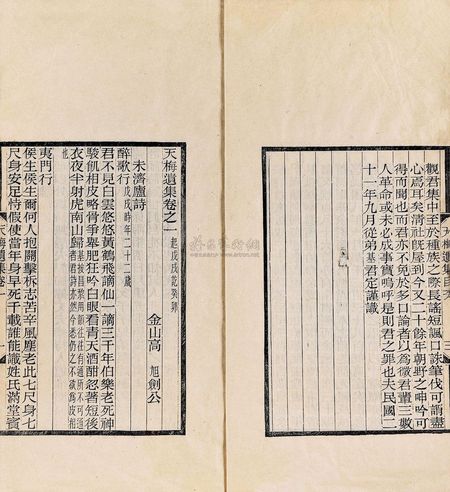 天梅遺集
三
觀君集中至於種族之際長謠短諷口誅筆伐可謂盡
心焉耳矣清社旣屋到今又二十餘年朝野之呻吟可
得而聞也而君亦不免於多口論者以為微君輩三數
人革命或未必成事實嗚呼是則君之罪也夫民國二
十一年九月從弟基君定謹識
天梅遺集卷之一 起戊戌訖癸卯
金山高 旭 劍公
未濟廬詩
醉歌行 戊戌時年二十二歲
君不見白雲悠悠黃鶴飛謫仙一謫三千年伯樂老死神
駿飢相皮略骨爭舉肥狂吟白眼看青天酒酣忽著短後
衣夜半射虎南山歸
基按昌黎用韻往往有通所不可通
夷門行
侯生侯生爾何人抱關擊柝志苦辛風塵老此七尺身七
尺身安足恃假使當年身早死千載誰能識姓氏滿堂賓
天梅遺集卷一
一